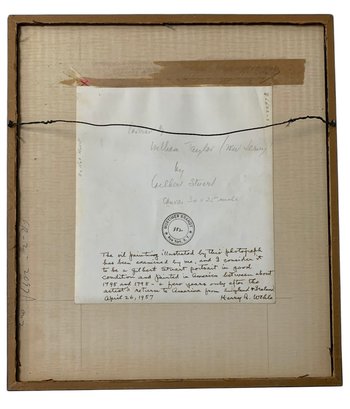 William Taylor (New Jersey)
by
Gilbert Stuart
Canvas 30 x 25 inches
MORTIMER BRANDT
New York
The oil painting illustrated by this photograph
has been examined by me, and I consider it
to be a Gilbert Stuart portrait in good
condition and painted in America between about
1795 and 1798 - a few years only after the
artist's return to America from England & Ireland
April 26, 1957 Harry B. Wehle